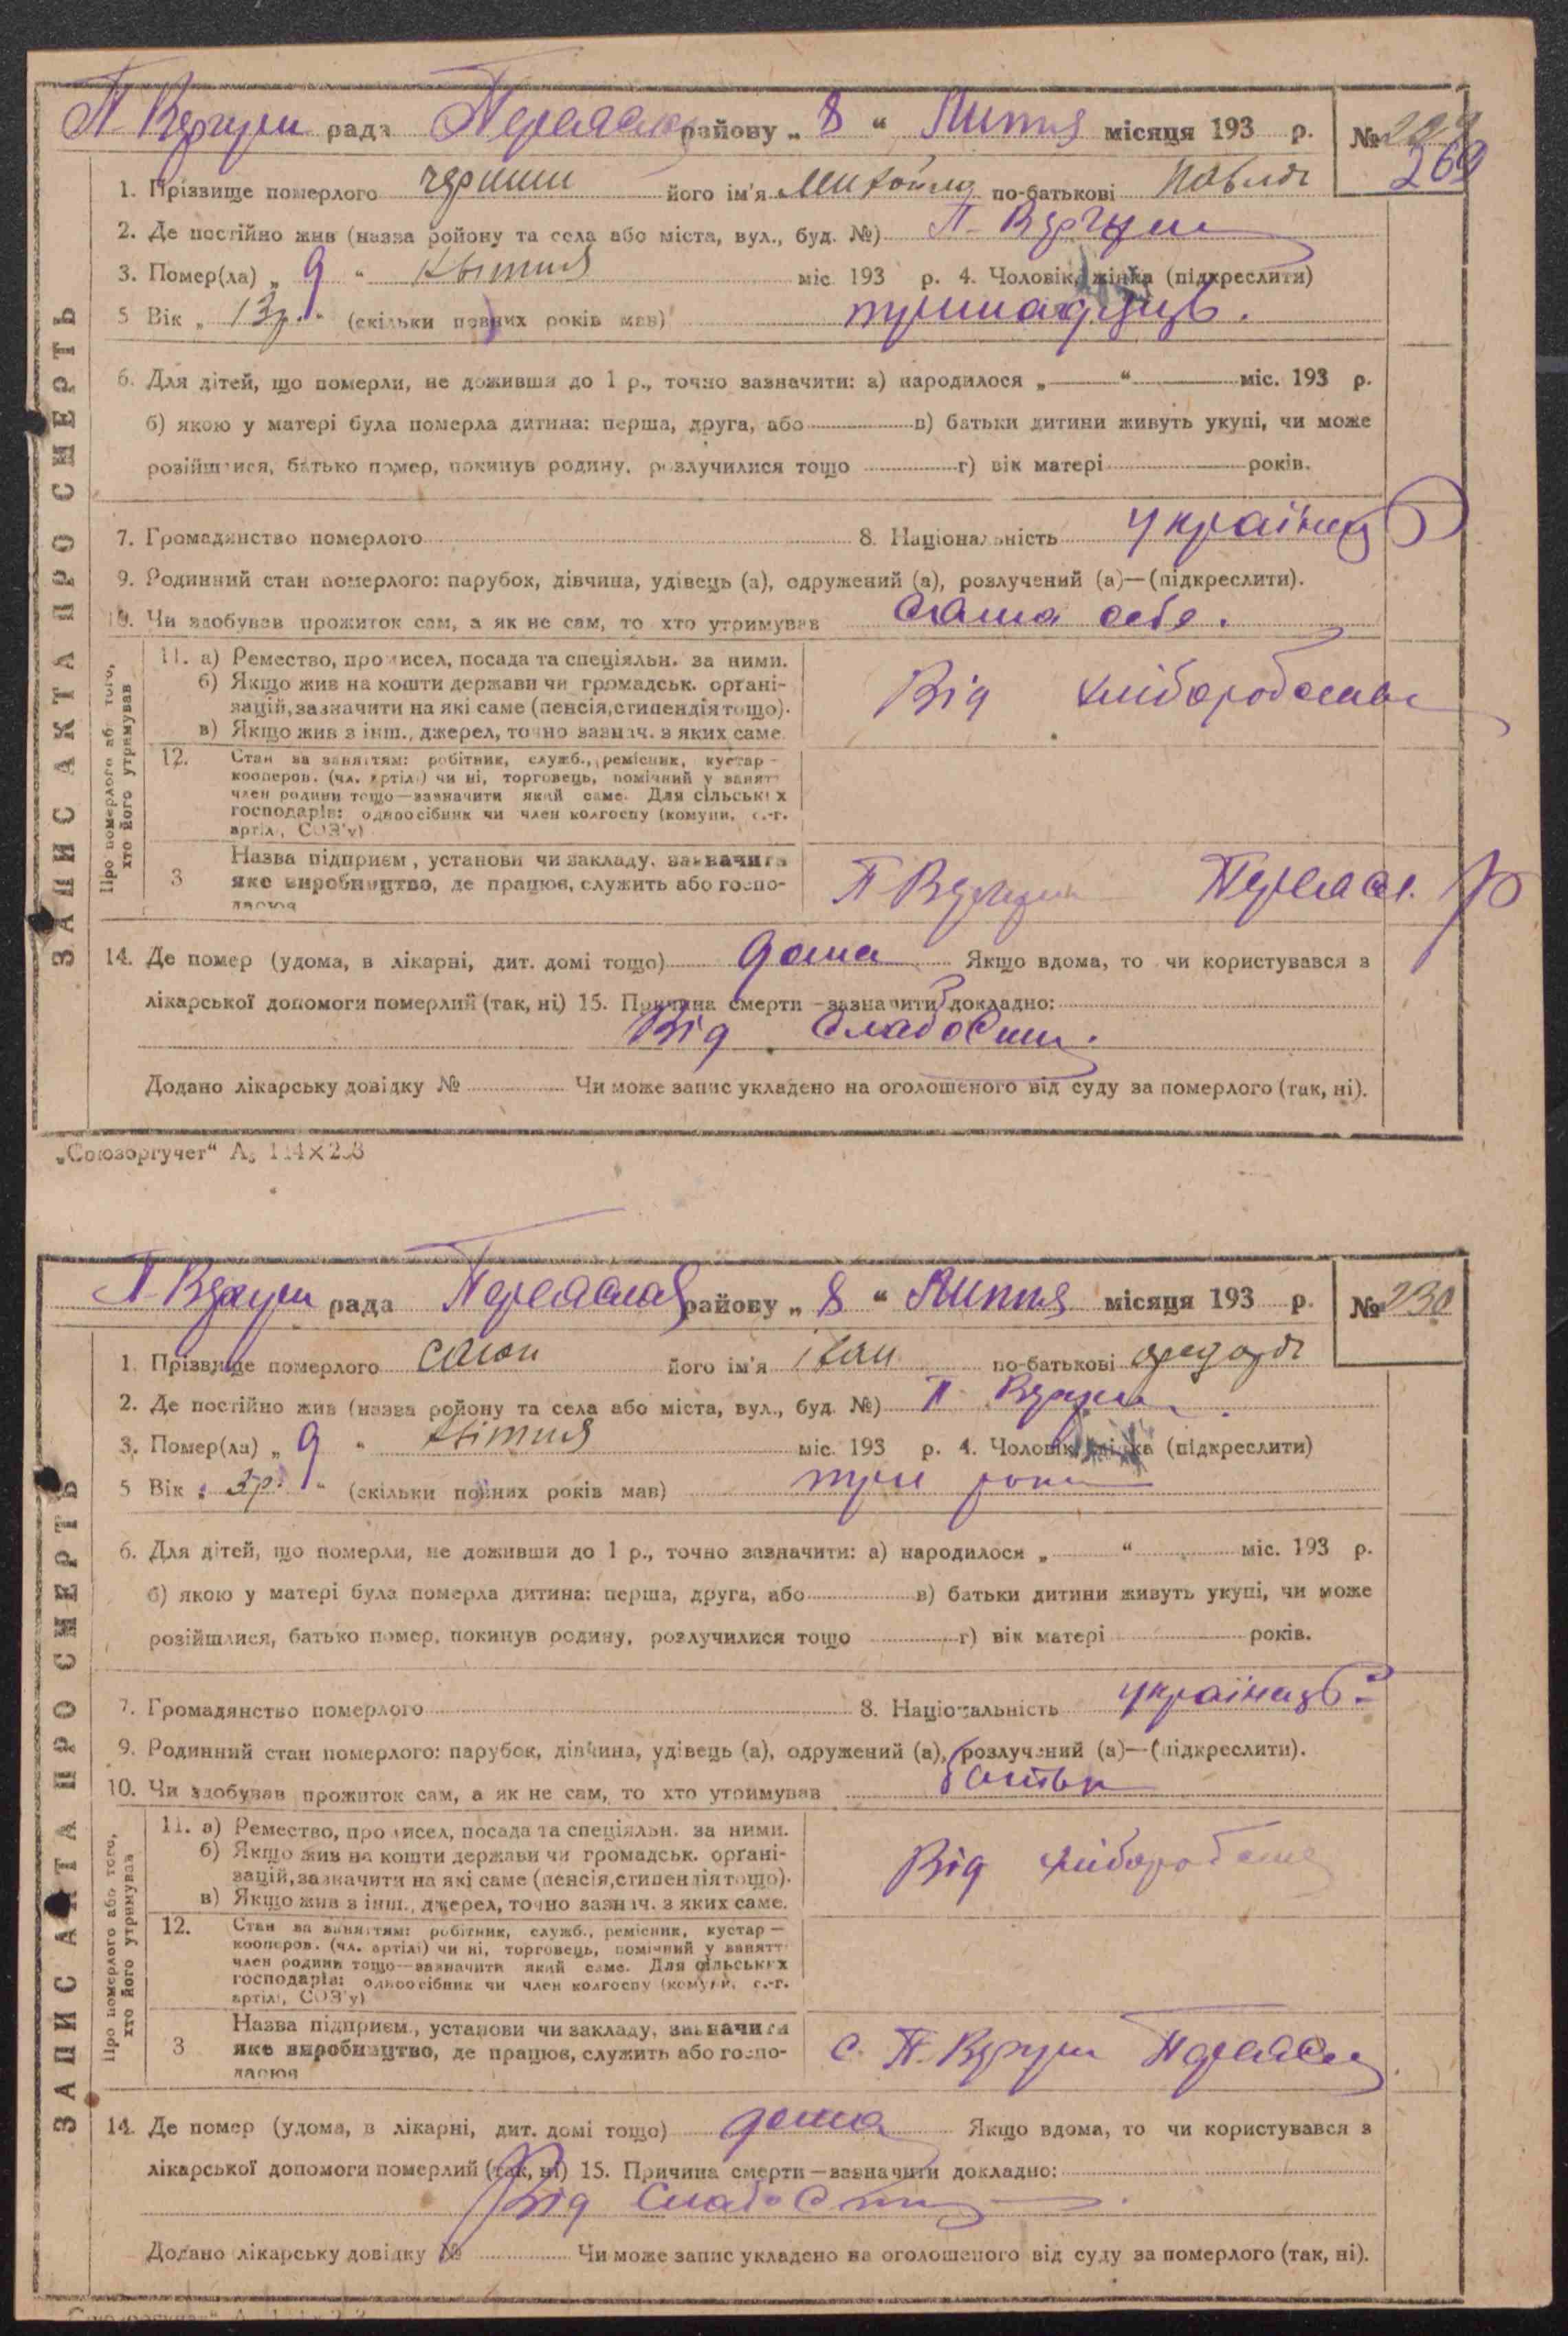 П. Вергуни рада Переяслав району „ 8 “ Липня місяця 193 р. №
269
1. Прізвище померлого його ім'я Михойло по-батькові Павлов
2. Де постійно жив (назва ройону та села або міста, вул., буд. №) П. Вергуни
3. Помер(ла) „ 9 “ квітня міс. 193 р. 4. Чоловік, жінка (підкреслити)
5 Вік „ 13р. “ (скільки повних років мав) тринадцять.
6. Для дітей, що померли, не доживши до 1 р., точно зазначити: а) народилося „ “ міс. 193 р.
б) якою у матері була померла дитина: перша, друга, або в) батьки дитини живуть укупі, чи може
розійшлися, батько помер, покинув родину, розлучилися тощо г) вік матері років.
7. Громадянство померлого 8. Національність українец
9. Родинний стан померлого: парубок, дівчина, удівець (а), одружений (а), розлучений (а)—(підкреслити).
10. Чи здобував прожиток сам, а як не сам, то хто утримував сама себе.
11. а) Ремество, промисел, посада та спеціяльн. за ними.
б) Якщо жив на кошти держави чи громадськ. органі-
зацій, зазначити на які саме (пенсія, стипендія тощо).
в) Якщо жив з інш., джерел, точно зазнач. з яких саме.
Від хліборобства
12. Стан за заняттям: робітник, служб., ремісник, кустар—
кооперов. (чл. артілі) чи ні, торговець, помічний у занятт
член родини тощо—зазначити який саме. Для сільських
господарів: одноосібник чи член колгоспу (комуни, с.-г.
артілі, СОЗ'у)
3 Назва підприєм., установи чи закладу, зазначити
яке виробництво, де працює, служить або госпо-
дарює
П Вергуни Переясл. р
14. Де помер (удома, в лікарні, дит. домі тощо) дома Якщо вдома, то чи користувався з
лікарської допомоги померлий (так, ні) 15. Причина смерти—зазначити докладно:
Від слабости.
Додано лікарську довідку № Чи може запис укладено на оголошеного від суду за померлого (так, ні).
Про померлого або того, хто його утримував
ЗАПИС АКТА ПРО СМЕРТЬ
„Союзоргучет“ А₅ 114×203
П. Вергуни рада Переяслав району „ 8 “ Липня місяця 193 р. № 230
1. Прізвище померлого його ім'я Іван по-батькові федоров
2. Де постійно жив (назва ройону та села або міста, вул., буд. №) П. Вергуни
3. Помер(ла) „ 9 “ квітня міс. 193 р. 4. Чоловік, жінка (підкреслити)
5 Вік „ 3р. “ (скільки повних років мав) три роки
6. Для дітей, що померли, не доживши до 1 р., точно зазначити: а) народилося „ “ міс. 193 р.
б) якою у матері була померла дитина: перша, друга, або в) батьки дитини живуть укупі, чи може
розійшлися, батько помер, покинув родину, розлучилися тощо г) вік матері років.
7. Громадянство померлого 8. Національність українець
9. Родинний стан померлого: парубок, дівчина, удівець (а), одружений (а), розлучений (а)—(підкреслити).
10. Чи здобував прожиток сам, а як не сам, то хто утримував батьки
11. а) Ремество, промисел, посада та спеціяльн. за ними.
б) Якщо жив на кошти держави чи громадськ. органі-
зацій, зазначити на які саме (пенсія, стипендія тощо).
в) Якщо жив з інш., джерел, точно зазнач. з яких саме.
Від хліборобства
12. Стан за заняттям: робітник, служб., ремісник, кустар—
кооперов. (чл. артілі) чи ні, торговець, помічний у занятт
член родини тощо—зазначити який саме. Для сільських
господарів: одноосібник чи член колгоспу (комуни, с.-г.
артілі, СОЗ'у)
3 Назва підприєм., установи чи закладу, зазначити
яке виробництво, де працює, служить або госпо-
дарює
с. П. Вергуни Переясл
14. Де помер (удома, в лікарні, дит. домі тощо) дома Якщо вдома, то чи користувався з
лікарської допомоги померлий (так, ні) 15. Причина смерти—зазначити докладно:
Від Слабости
Додано лікарську довідку № Чи може запис укладено на оголошеного від суду за померлого (так, ні).
Про померлого або того, хто його утримував
ЗАПИС АКТА ПРО СМЕРТЬ